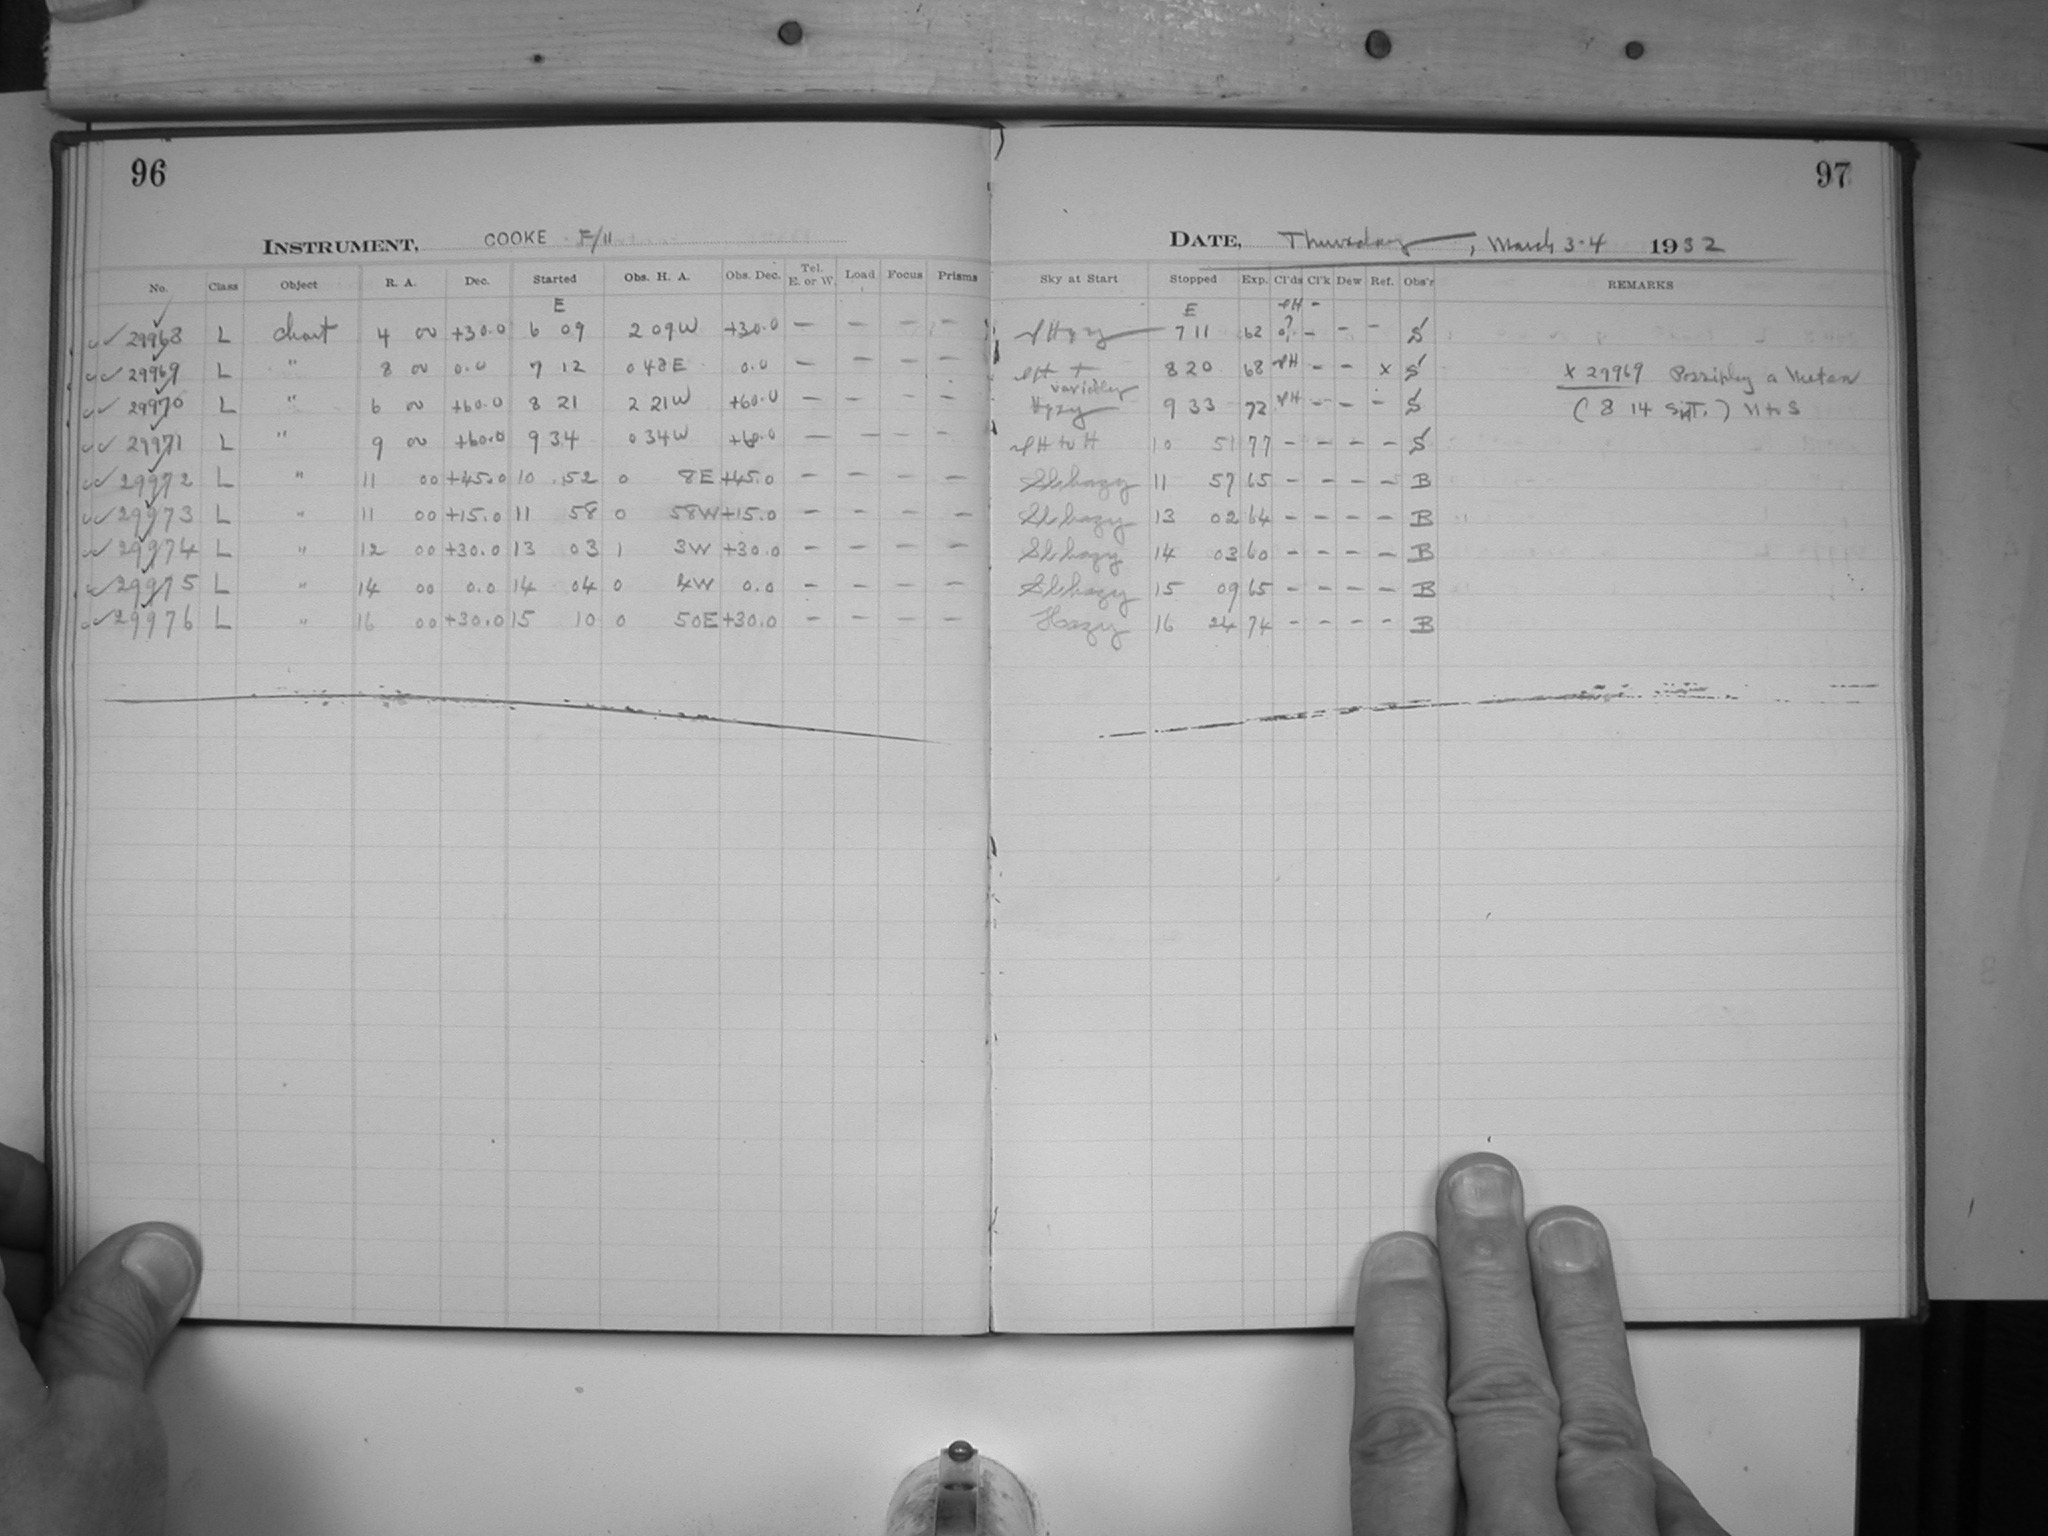 96
INSTRUMENT, COOKE F/11
No. Class Object R. A. Dec. Started Obs. H. A. Obs. Dec. Tel. E. or W. Load Focus Prisms
E
29968 L chart 4 00 +30.0 6 09 2 09W +30.0 – – – –
29969 L " 8 00 0.0 7 12 0 48E 0.0 –
29970 L " 6 00 +60.0 8 21 2 21W +60.0 – – – –
29971 L " 9 00 +60.0 9 34 0 34W +60.0 – – – –
29972 L " 11 00 +45.0 10 52 0 8E +45.0 – – – –
29973 L " 11 00 +15.0 11 58 0 58W +15.0 – – – –
29974 L " 12 00 +30.0 13 03 1 3W +30.0 – – – –
29975 L " 14 00 0.0 14 04 0 4W 0.0 – – – –
29976 L " 16 00 +30.0 15 10 0 50E +30.0 – – – –
97
DATE, Thursday, March 3-4 1932
Sky at Start Stopped Exp. Cl'ds Cl'k Dew Ref. Obs'r REMARKS
E
7 11 62 ? – – – S
8 20 68 – – x S x 29969 Possibly a Meteor
variable
Hazy 9 33 72 – – – S (8 14 ) N to S
H to H 10 51 77 – – – – S
Sl hazy 11 57 65 – – – – B
Sl hazy 13 02 64 – – – – B
Sl hazy 14 03 60 – – – – B
Sl hazy 15 09 65 – – – – B
Hazy 16 24 74 – – – – B